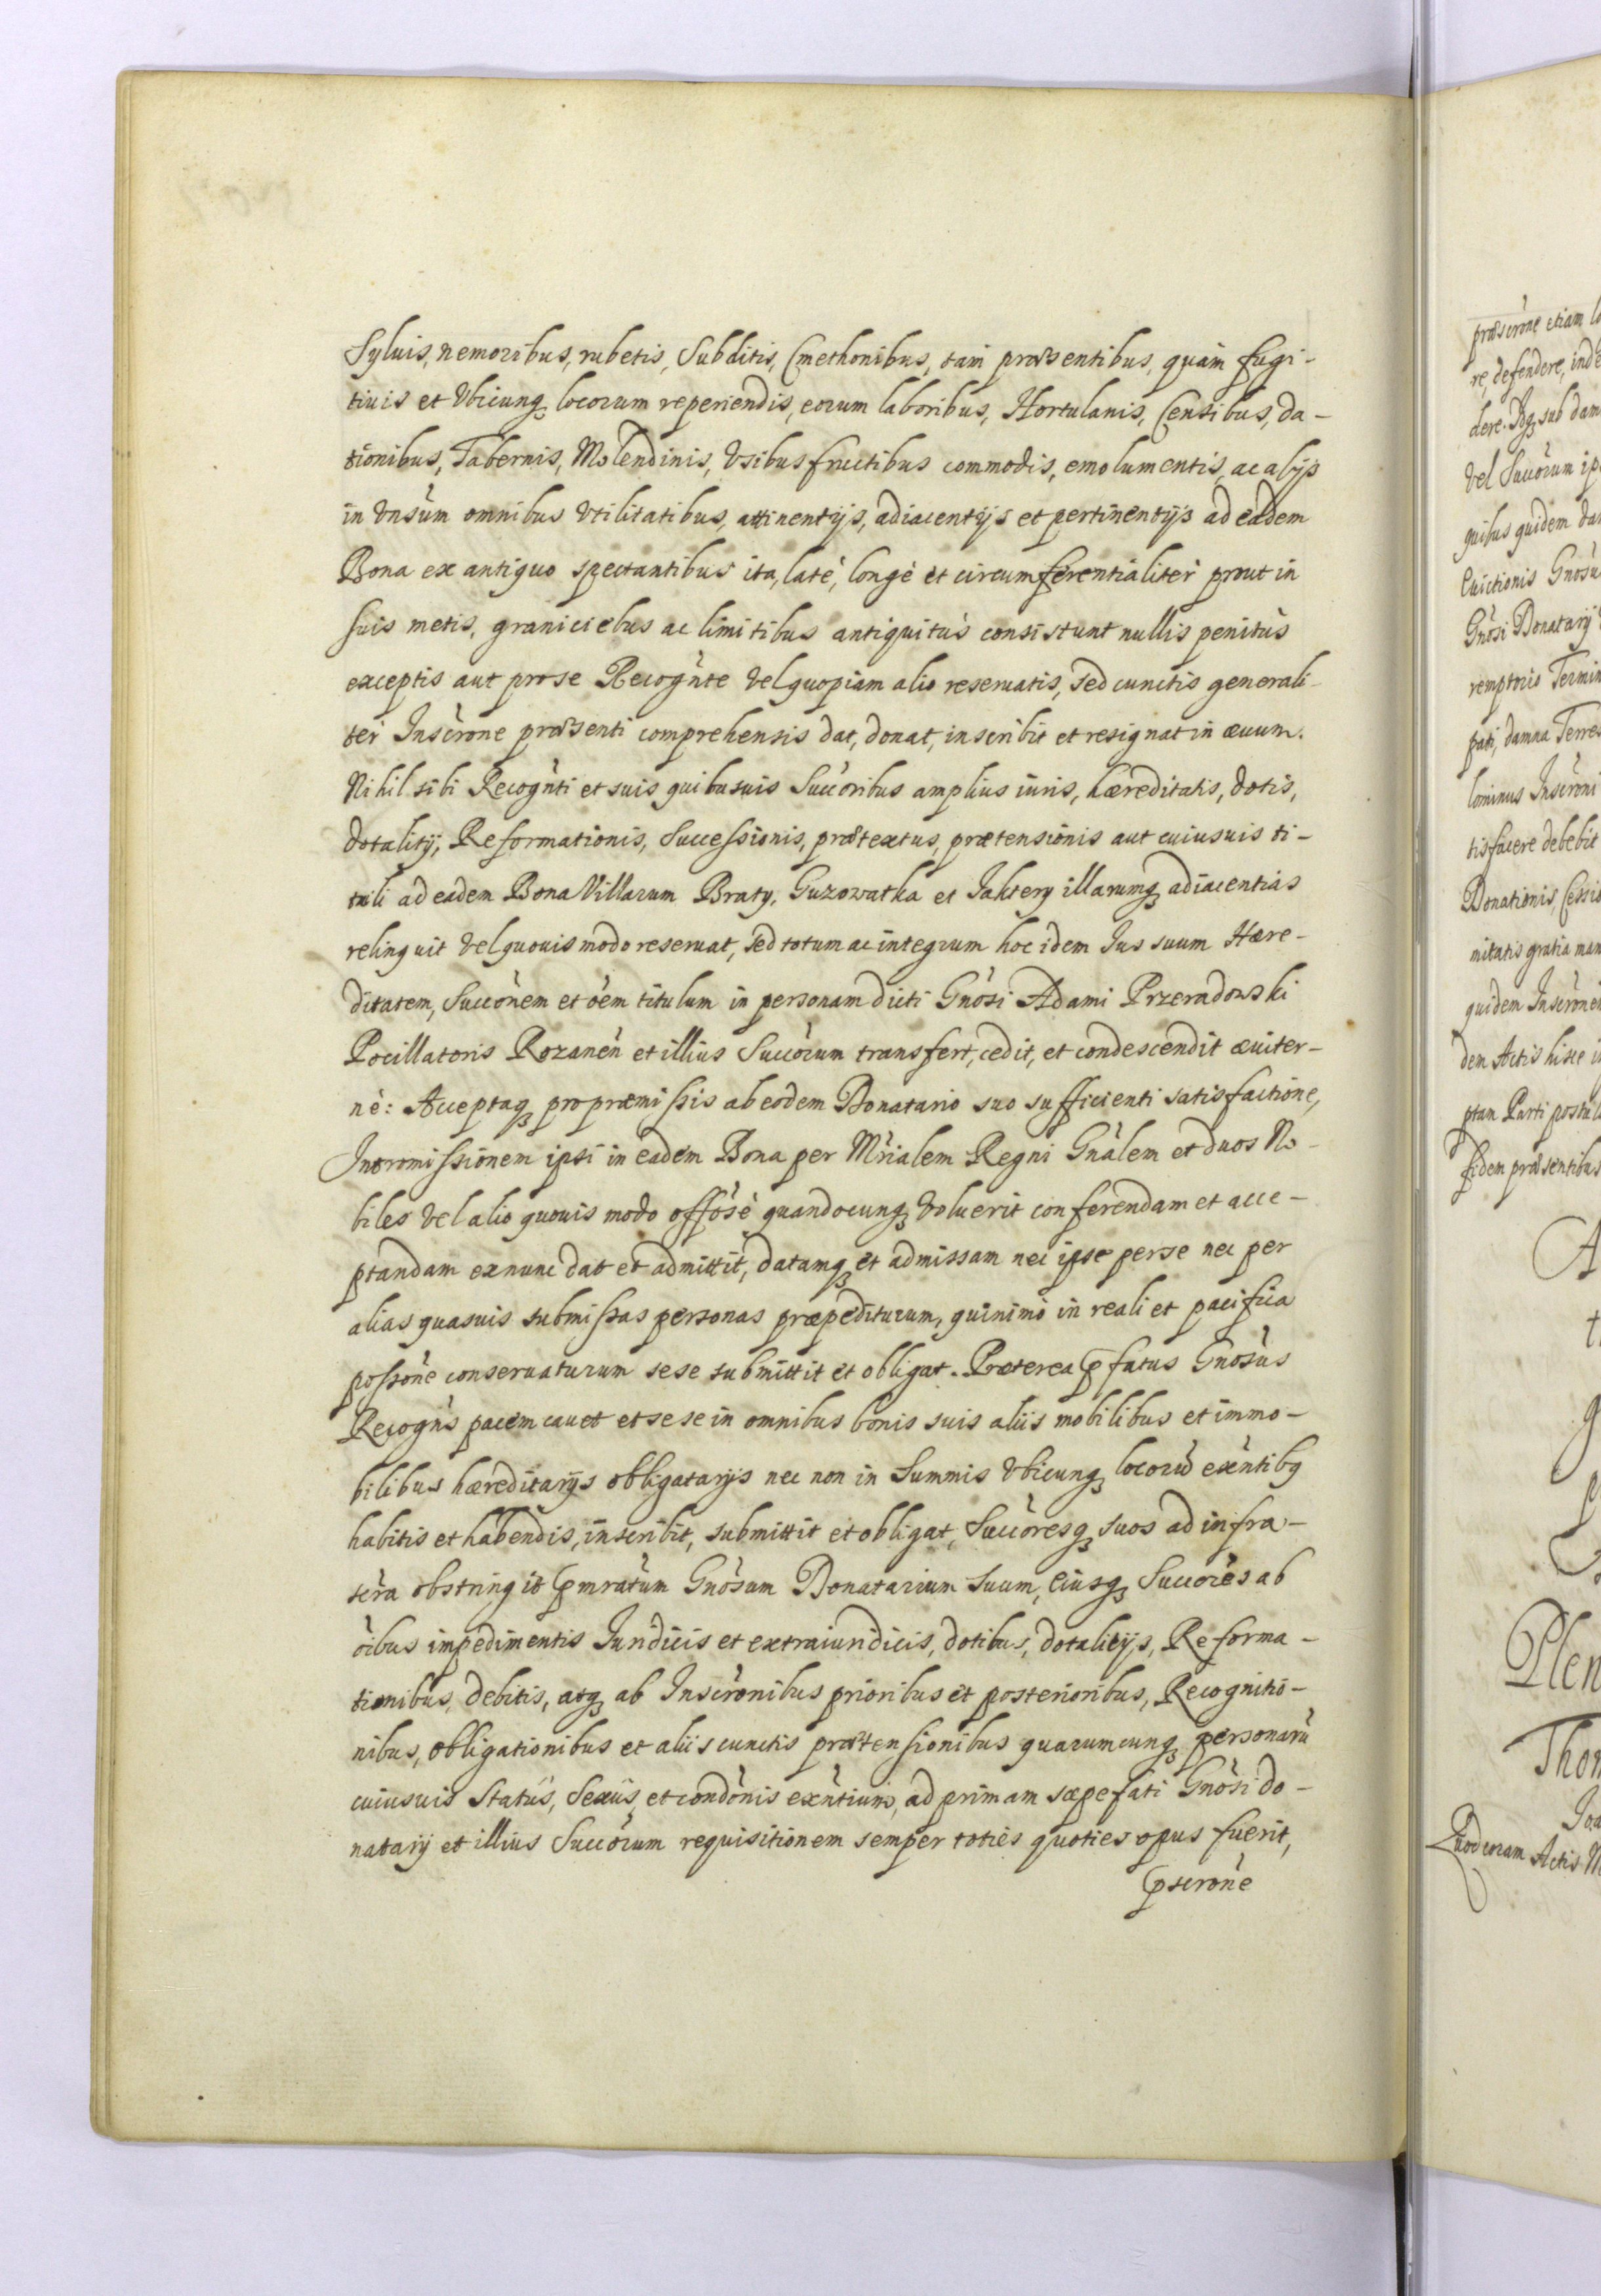 Syluis, nemoribus, rubetis, Subditis, Cmethonibus, tam præsentibus, quàm fugi-
tiuis et Vbicunq₃ locorum reperiendis, eorum laboribus, Hortulanis, Censibus, da-
tionibus, Tabernis, Molendinis, Vsibusfructibus commodis, emolumentis, ac alijs
in Vnsum omnibus Vtilitatibus, attinentijs, adiacentijs et pertinentijs ad eadem
Bona ex antiquo spectantibus ita, latè, longè et circumferentialiter prout in
suis metis, graniciebus ac limitibus antiquitùs consistunt nullis penitùs
exceptis aut pro se Recogǹte Vel quopiam alio reseruatis, sed cunctis generali-
ter Inscròne præsenti comprehensis dat, donat, inscribit et resignat in æuum.
Nihil sibi Recogǹti et suis quibusuis Succòribus amplius iuris, hæreditatis, dotis,
dotalitij, Reformationis, Successionis, prætextus, prætensionis aut cuiusuis ti-
tuli ad eadem Bona Villarum Braty, Guzowatka et Jaktery illarumq₃ adiacentias
relinquit Vel quouis modo reseruat, sed totum ac integrum hoc idem Jus suum Hære-
ditatem, Succònem et òem titulum in personam dicti Gnòsi Adami Przeradowski
Pocillatoris Rozanèn et illius Succòrum transfert, cedit, et condescendit æuiter-
nè: Acceptaq₃ pro præmissis ab eodem Donatario suo sufficienti satisfactione,
Intromissionem ipsi in eadem Bona per Mrìalem Regni Gnàlem et duos No-
biles Vel alio quouis modo offòsè quandocunq₃ Voluerit conferendam et acce-
ptandam ex nunc dat et admittit, datamq₃ et admissam nec ipse per se nec per
alias quasuis submissas personas præpediturum, quinimò in reali et pacifica
possòne conseruaturum sese submittit et obligat. Præterea pfatus Gnòsus
Recogǹs pacem cauet et sese in omnibus bonis suis aliis mobilibus et immo-
bilibus hæreditarijs obligatarijs nec non in Summis Vbicunq₃ locorù exèntibq
habitis et habendis, inscribit, submittit et obligat, Succòresq₃ suos ad infra-
scrà obstringit pmràtum Gnòsum Donatarium suum, Eiusq₃ Succòres ab
òibus impedimentis Juridicis et extraiuridicis, dotibus, dotalitijs, Reforma-
tionibus, debitis, atq₃ ab Inscrònibus prioribus et posterioribus, Recognitio-
nibus, obligationibus et aliis cunctis prætensionibus quarumcunq₃ personarù
cuiusuis Statùs, Sexûs, et condònis exǹtium, ad primam sæpefati Gnòsi do-
natarij et illius Succòrum requisitionem semper toties quoties opus fuerit,
pscròne
præscròne etiam
re, defendere,
dere. Idq₃ sub
Vel Succòrum
quibus quidem
Euictionis
Gnòsi Donatarij
remptorio
pati, damna
lominus Inscròni
tisfacere debebit
Donationis,
mitatis gratia
quidem
dem Actis hisce
ptam Parti
fidem præsentibus